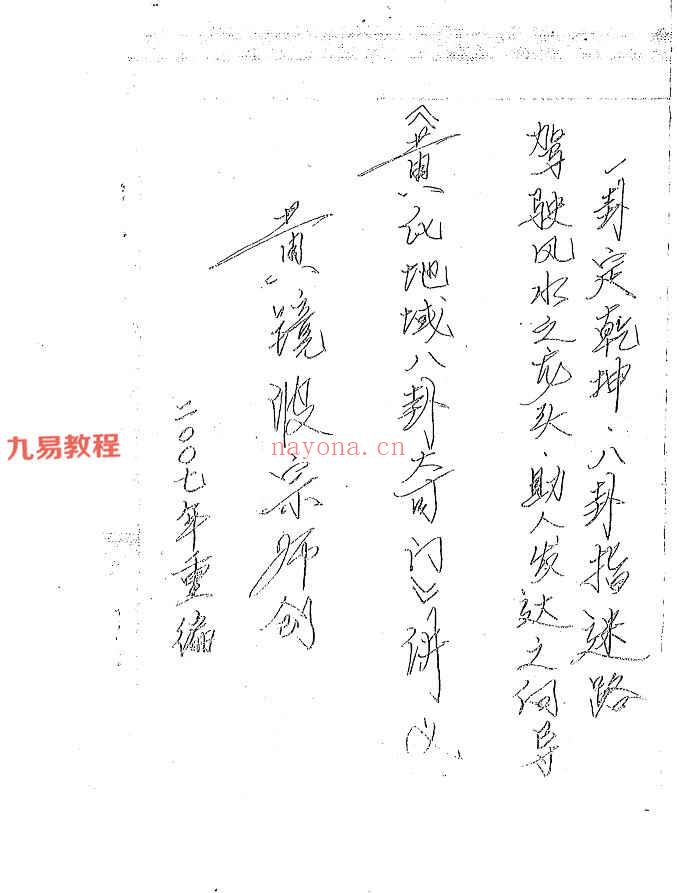 一卦定乾坤·八卦指迷路
驾驶风水之龙头·助人发达之向导
《黄氏地域八卦奇门》讲义
黄镜波宗师创
二00七年重编
九易教程
nayona.cn